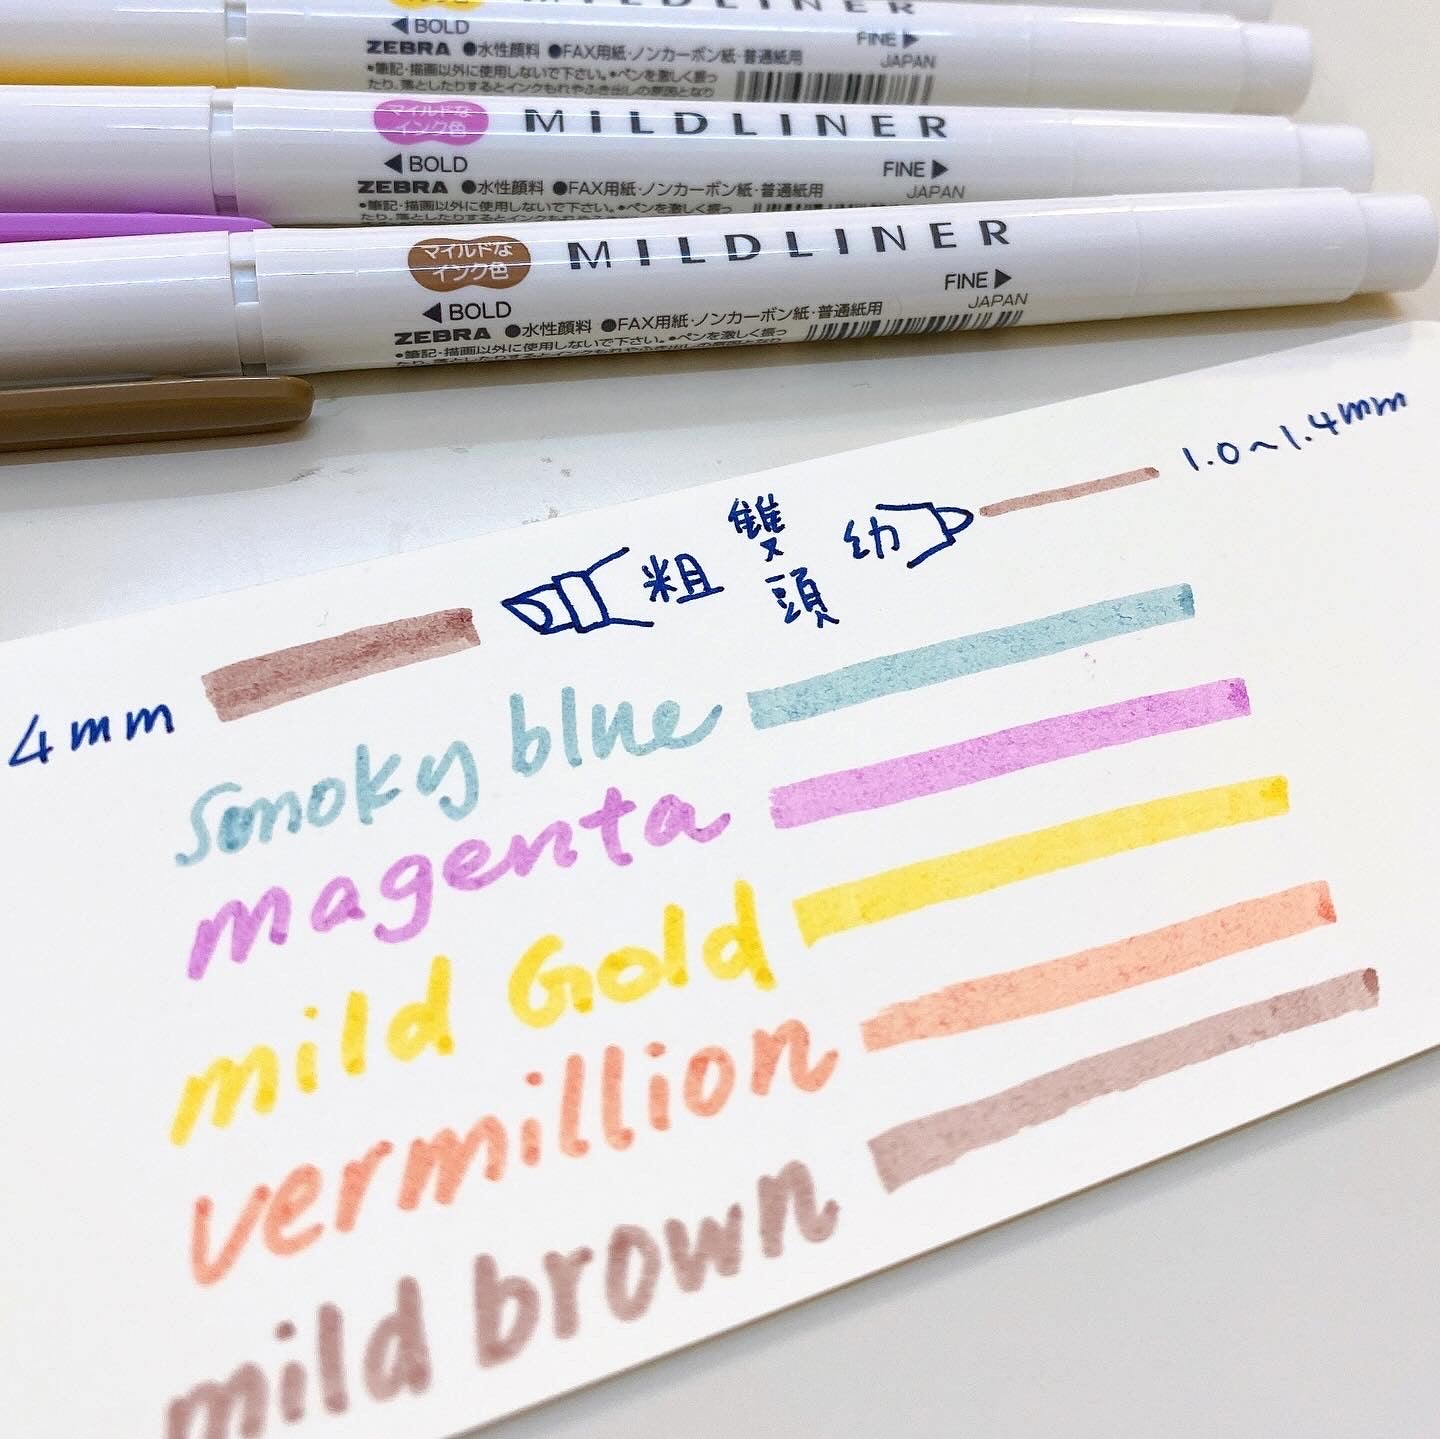 MILDLINER
◀BOLD
FINE▶
ZEBRA ●水性顔料 ●FAX用紙・ノンカーボン紙・普通紙用
JAPAN
•筆記・描画以外に使用しないで下さい。•ペンを激しく振っ
たり、落としたりするとインクもれやふき出しの原因となり
マイルドな
インク色
MILDLINER
◀BOLD
FINE▶
ZEBRA ●水性顔料 ●FAX用紙・ノンカーボン紙・普通紙用
JAPAN
•筆記・描画以外に使用しないで下さい。•ペンを激しく振っ
たり、落としたりするとインク
マイルドな
インク色
MILDLINER
◀BOLD
FINE▶
ZEBRA ●水性顔料 ●FAX用紙・ノンカーボン紙・普通紙用
JAPAN
•筆記・描画以外に使用しないで下さい。•ペンを激しく振っ
たり、落としたりするとインクもれやふき出しの原因となり
1.0~1.4mm
粗
雙
頭
幼
4mm
smoky blue
magenta
mild Gold
vermillion
mild brown